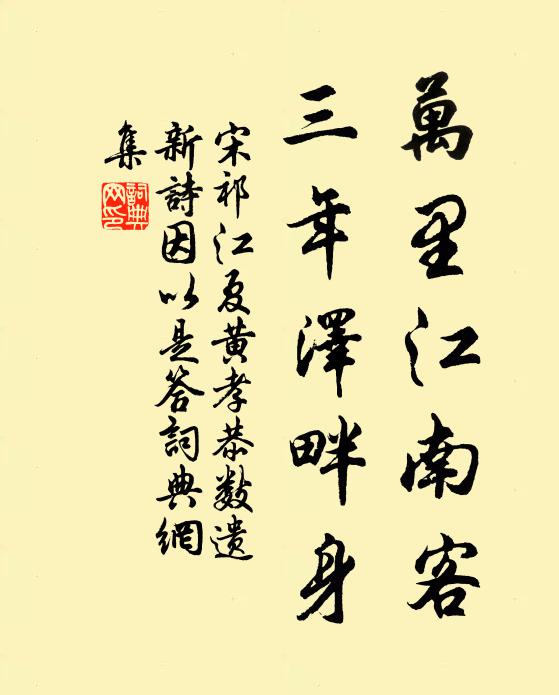 萬里江南客
三年澤畔身
宋祁江夏黃孝恭數遺
新詩因以是答詞典網
集
詞典
网印